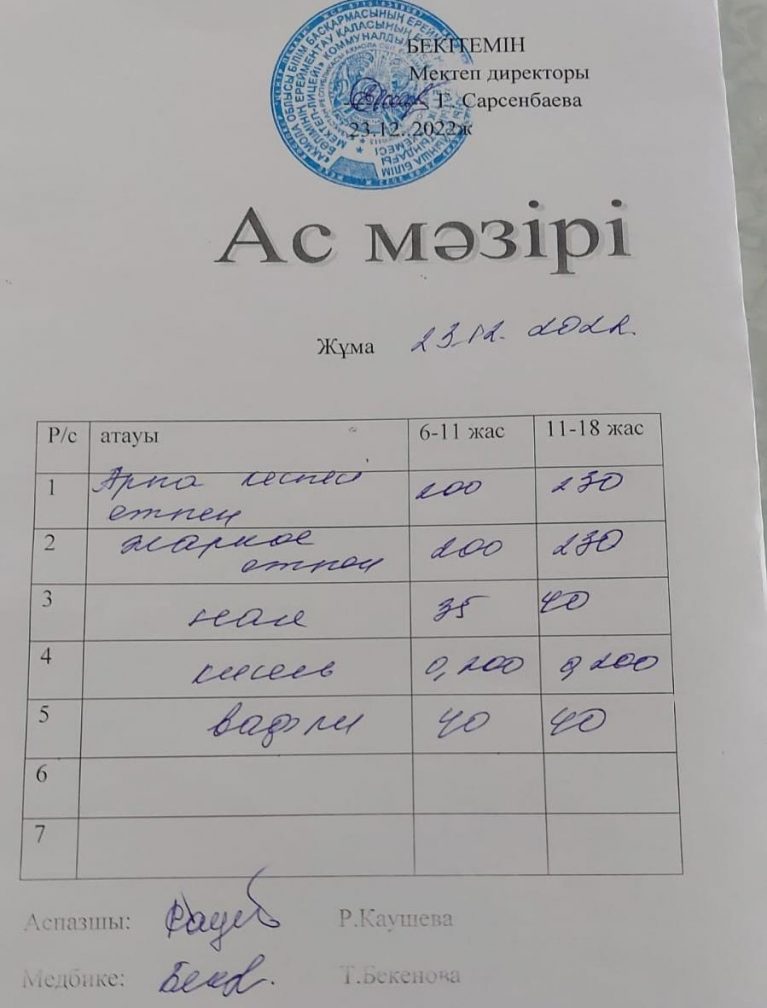 БЕКІТЕМІН
Мектеп директоры
Г. Сарсенбаева
23.12..2022ж
Ас мәзірі
Жұма 23.12. 2022.
Р/с атауы 6-11 жас 11-18 жас
1 Арпа кеспесі 200 230
етпен
2 жаркое 200 230
етпен
3 нан 35 40
4 кисель 0,200 0,200
5 вафли 40 40
6
7
Аспазшы: Р.Каушева
Медбике: Т.Бекенова